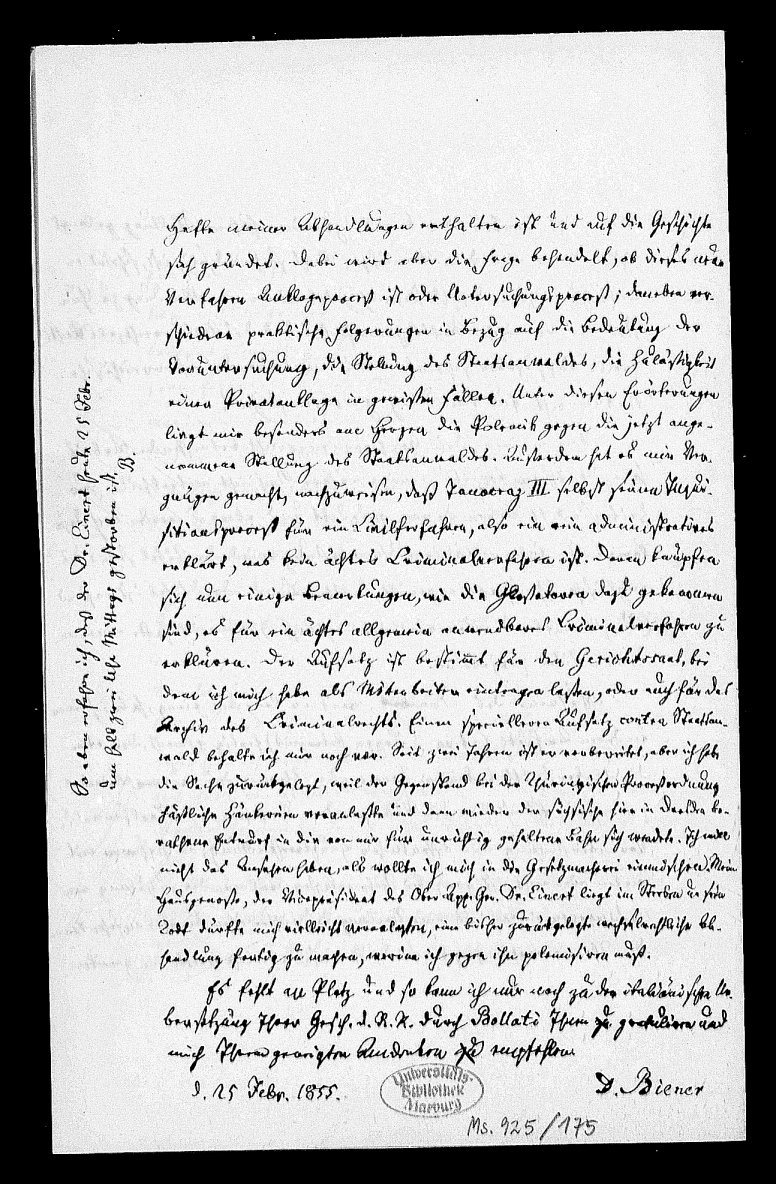 Hefte meiner Abhandlungen enthalten ist und auf die Geschichte
sich gründet. Dabei wird aber die Frage behandelt, ob dieses neue
Verfahren Anklageproceß ist oder Untersuchungsproceß; daneben ver-
schiedene praktische Folgerungen in Bezug auf die Bedeutung der
Voruntersuchung, die Stellung des Staatsanwaldes, die Zulässigkeit
einer Privatanklage in gewissen Fällen. Unter diesen Erörterungen
liegt mir besonders am Herzen die Polemik gegen die jetzt ange-
nommene Stellung des Staatsanwaldes. Außerdem hat es mir Ver-
gnügen gemacht, nachzuweisen, daß Innocenz III selbst seinen Inqui-
sitionsproceß für ein Civilverfahren, also ein rein administratives
erklärt, was kein ächtes Criminalverfahren ist. Daran knüpfen
sich nun einige Bemerkungen, wie die Glossatoren dazu gekommen
sind, es für ein ächtes allgemein anwendbares Criminalverfahren zu
erklären. Der Aufsatz ist bestimmt für den Gerichtssaal, bei
dem ich mich habe als Mitarbeiter eintragen lassen, oder auch für das
Archiv des Criminalrechts. Einen specielleren Aufsatz contra Staatsan-
wald behalte ich mir noch vor. Seit zwei Jahren ist er vorbereitet, aber ich habe
die Sache zurückgelegt, weil der Gegenstand bei der Thüringischen Proceßordnung
häßliche Zänkereien veranlaßte und dann wieder der sächsische hier in Dresden be-
rathene Entwurf in die von mir für unrichtig gehaltene Bahn sich wendete. Ich will
nicht das Ansehen haben, als wollte ich mich in die Gesetzmacherei einmischen. Mein
Hausgenosse, der Vicepräsident des Ober App. Ger. Dr. Einert liegt im Sterben u. sein
Todt dürfte mich vielleicht veranlassen, eine bisher zurückgelegte wechselrechtliche Ab-
handlung fertig zu machen, worin ich gegen ihn polemisiren muß.
Es fehlt an Platz und so kann ich nur noch zu der italiänischen Ue-
bersetzung Ihrer Gesch. d. R. R. durch Bollati Ihnen zu gratuliren und
mich Ihrem geneigten Andenken zu empfehlen.
d. 25 Febr. 1855.
D. Biener
So eben erfahre ich, daß der Dr. Einert heute 25 Febr.
um halb zwei Uhr Mittags gestorben ist.
B.
Universitäts-
Bibliothek
Marburg
Ms. 925/175